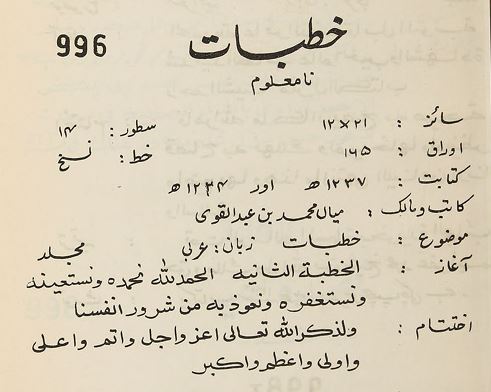 996
خطبات
نامعلوم
سائز : ۲۱×۱۲ سطور : ۱۴
اوراق : ۱۶۵ خط : نسخ
کتابت : ۱۲۳۷ھ اور ۱۲۳۴ھ
کاتب و مالک : میاں محمد بن عبدالقوی
موضوع : خطبات زبان : عربی مجلد
آغاز : الخطبة الثانیه الحمدللّٰه نحمده ونستعینه
ونستغفره ونعوذ به من شرور انفسنا
اختتام : ولذکر اللّٰه تعالی اعز واجل واتم واعلی
واولی واعظم واکبر